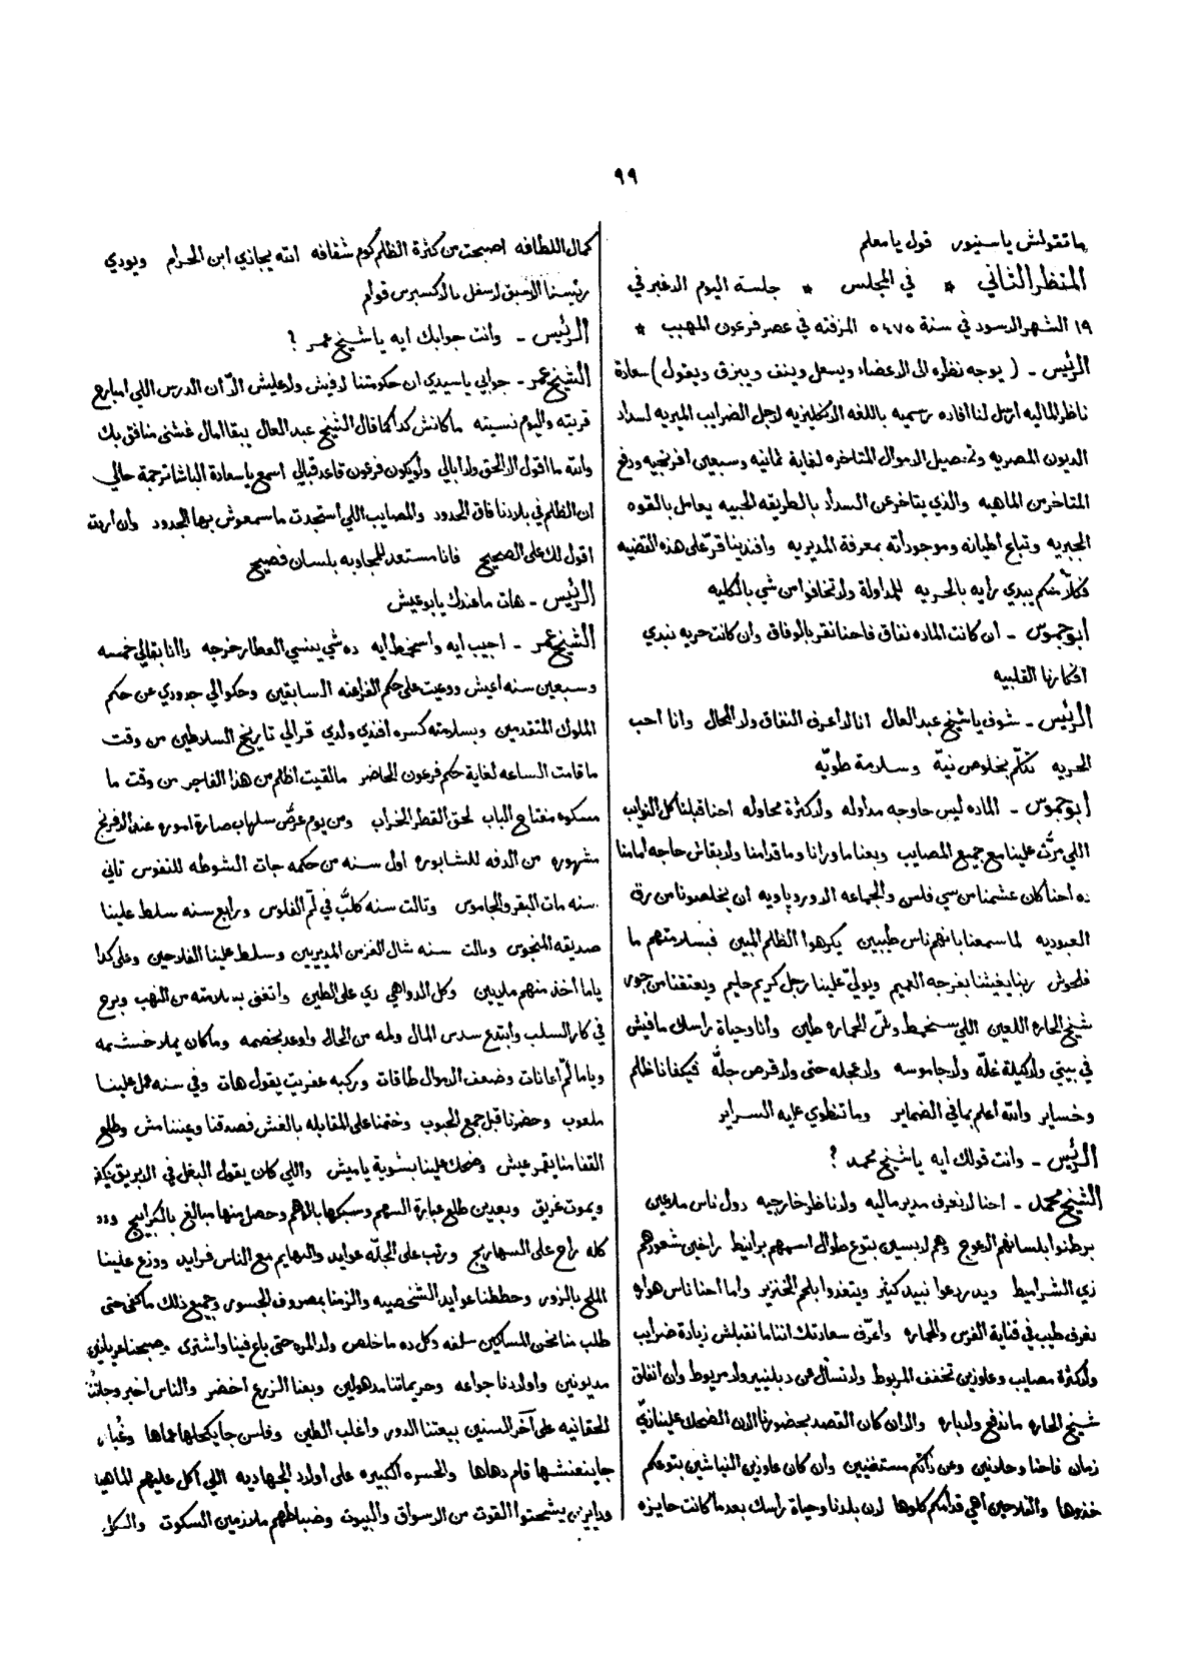 ٩٩
ماتقولش ياسنيور قول يامعلم
المنظر الثاني * في المجلس * جلسة اليوم الاغبر في
١٩ الشهر الاسود في سنة ٥٤٧٥ المزفته في عصر فرعون المهبب *
الرئيس ـ (يوجه نظره الى الاعضاء ويسعل وينف ويبزق ويقول) سعادة
ناظر الماليه ارسل لنا افاده رسميه باللغه الانكليزيه لاجل الضرايب الميريه لسداد
الديون المصريه وتحصيل الاموال المتاخره لغاية ثمانيه وسبعين افرنجيه ودفع
المتاخر من الماهيه والذي يتاخر عن السداد بالطريقه الحبيه يعامل بالقوه
الجبريه وتباع اطيانه وموجوداته بمعرفة المديريه وافندينا قرّ على هذه القضيه
فكلاً منكم يبدي رأيه بالحريه للمداولة ولا تخافوا من شي بالكليه
أبو جموس ـ ان كانت الماده نفاق فاحنا نقر بالوفاق وان كانت حريه نبدي
افكارنا القلبيه
الرئيس ـ شوف ياشيخ عبد العال انا لا اعرف النفاق ولا المحال وانا احب
الحريه تتكلّم بخلوص نيّة وسلامة طويّه
أبو جموس ـ الماده ليس حاوجه مداوله ولا كثرة محاوله احنا قبلنا كل النوايب
اللي مرّت علينا مع جميع المصايب وبعنا ما ورانا وما قدامنا ولا بقاش حاجه امامنا
ده احنا كان عشمنا من سي فلس والجماعه الاوروباويه ان يخلصونا من رق
العبوديه لما سمعنا بانهم ناس طيبين يكرهوا الظلم المبين فبسلامتهم ما
فلحوش ربنا يغيثنا بفرجه العميم ويولّي علينا رجل كريم حليم ويعتقنا من جور
شيخ الحاره اللعين اللي سنحمط وتّى الحماره طين وانا وحياة راسك مافيش
في بيتي ولا كيلة غلّه ولا جاموسه ولا عجله حتى ولا قرص جلّه فيكفانا ظالم
وخساير والله اعلم بما في الضماير وما تنطوي عليه السراير
الرئيس ـ وانت قولك ايه ياشيخ محمد ؟
الشيخ محمد ـ احنا لا نعرف مدير ماليه ولا ناظر خارجيه دول ناس ملاعين
برطنوا بلسانهم الاعوج وهم لابسين بتوع طوال اسمهم برانيط راخيين شعورهم
زي الشراميط ويدردعوا نبيد كتير ويتغدوا بلحم الخنزير واما احنا ناس هواه
نعرف طيب في قناية الفرس والحماره واعرّف سعادتك اننا ما نقبلش زيادة ضرايب
ولا كثرة مصايب وعاوزين تخفف المربوط ولا تسأل عن دبلنيير ولا مربوط وان انفلق
شيخ الحاره ما ندفع ولا باره والا ان كان القصد بحضورنا الان الضحك علينا زيّ
زمان فاحنا وحلانين وعن زأتكم مستغنيين وان كان عاوزين النياشين بتوعكم
خذوها والفلاحين اهي قدامكم كلوها لان بلدنا وحياة راسك بعد ما كانت حايزه
كمال اللطافه اصبحت من كثرة الظلم كوم شقافه الله يجازي ابن الحرام ويودي
رئيسنا الاسبق لاسفل بالاكسبرس قوام
الرئيس ـ وانت جوابك ايه ياشيخ عمر ؟
الشيخ عمر ـ جوابي ياسيدي ان حكومتنا لافيش ولا عليش الاّ ان الدرس اللي امبارح
قريته واليوم نسيته ماكانش كدا كما قال الشيخ عبد العال يبقا امال غشني منافق بك
والله ما اقول الا الحق ولا ابالي ولو يكون فرعون قاعد قبالي اسمع ياسعادة الباشا ترجمة حالي
ان الظلم في بلادنا فاق الحدود والمصايب اللي استجدت ماسمعوش بها الجدود وان اردت
اقول لك على الصحيح فانا مستعد للمجاوبه بلسان فصيح
الرئيس ـ هات ماعندك يابو عيش
الشيخ عمر ـ اجيب ايه واسخمط ايه ده شي ينسي العطار خرجه دا انا بقالي خمسه
وسبعين سنه اعيش ووعيت على حكم الفراعنه السابقين وحكوا لي جدودي عن حكم
الملوك المتقدمين وبسلامته كسره افندي ولدي قرا لي تاريخ السلاطين من وقت
ما قامت الساعه لغاية حكم فرعون الحاضر مالقيت اظلم من هذا الفاجر من وقت ما
مسكوه مفتاح الباب لحق القطر الخراب ومن يوم عرضّ سلهاب صارة اموره عند الافرنج
مشهوره من الدفه للشابوره اول سنه من حكمه جات الشوطه للنفوس تاني
سنه مات البقر والجاموس وتالت سنه كلبّ في لم الفلوس ورابع سنه سلط علينا
صديقه المنحوس سنه شال الغز من المديريين وسلط علينا الفلاحين وعلى كدا
ياما أخذ منهم ملايين وكل الدواهي دي على الطين واتفق بسلامته من النهب وبرح
في كار السلب وابتدع سدس المال ولمه من الحال واوعد بخصمه وما كان يملا خشمه
وياما لمّ اعانات وضعف الاموال طاقات وركبه عفريت يقول هات وفي سنه عمل علينا
ملعوب وحضرنا قبل جمع الحبوب وختمنا على المقابله بالغش فصدقنا وعيننا مش وطلع
القفا منا يقمر عيش وضحك علينا بشوية ياميش واللي كان يقول البغل في الابريق يكفر
ويموت غريق وبعدين طلع عبارة السهم وسبكها بالاهم وحصل منها مبالغ بالكرابيج وده
كله راح على السهاريج ورتب على الجلّه عوايد والبهايم مع الناس فرايد ووزع علينا
الملح بالزور وحططنا عوايد الشخصيه والزمنا بمصروف الجسور وجميع ذلك ما كفى حتى
طلب منا نحن المساكين سلفه وكل ده ما خلص ولا المره حتى باع فينا واشترى وصبحنا عريانين
مديونين واولادنا جواعه وحريماتنا مدهولين وبعنا الزرع اخضر والناس اخبر وجانا
الحقانيه على آخر السنين بيعتنا الدور واغلب الطين وفلس جا يكحلها عماها وغُبار
جا ينعنشها قام دهاها والحسره الكبيره على اولاد الجهاديه اللي اكل عليهم الماهيه
ودايرين يشحتوا القوت من الاسواق والبيوت وضباطهم ملازمين السكوت والكل